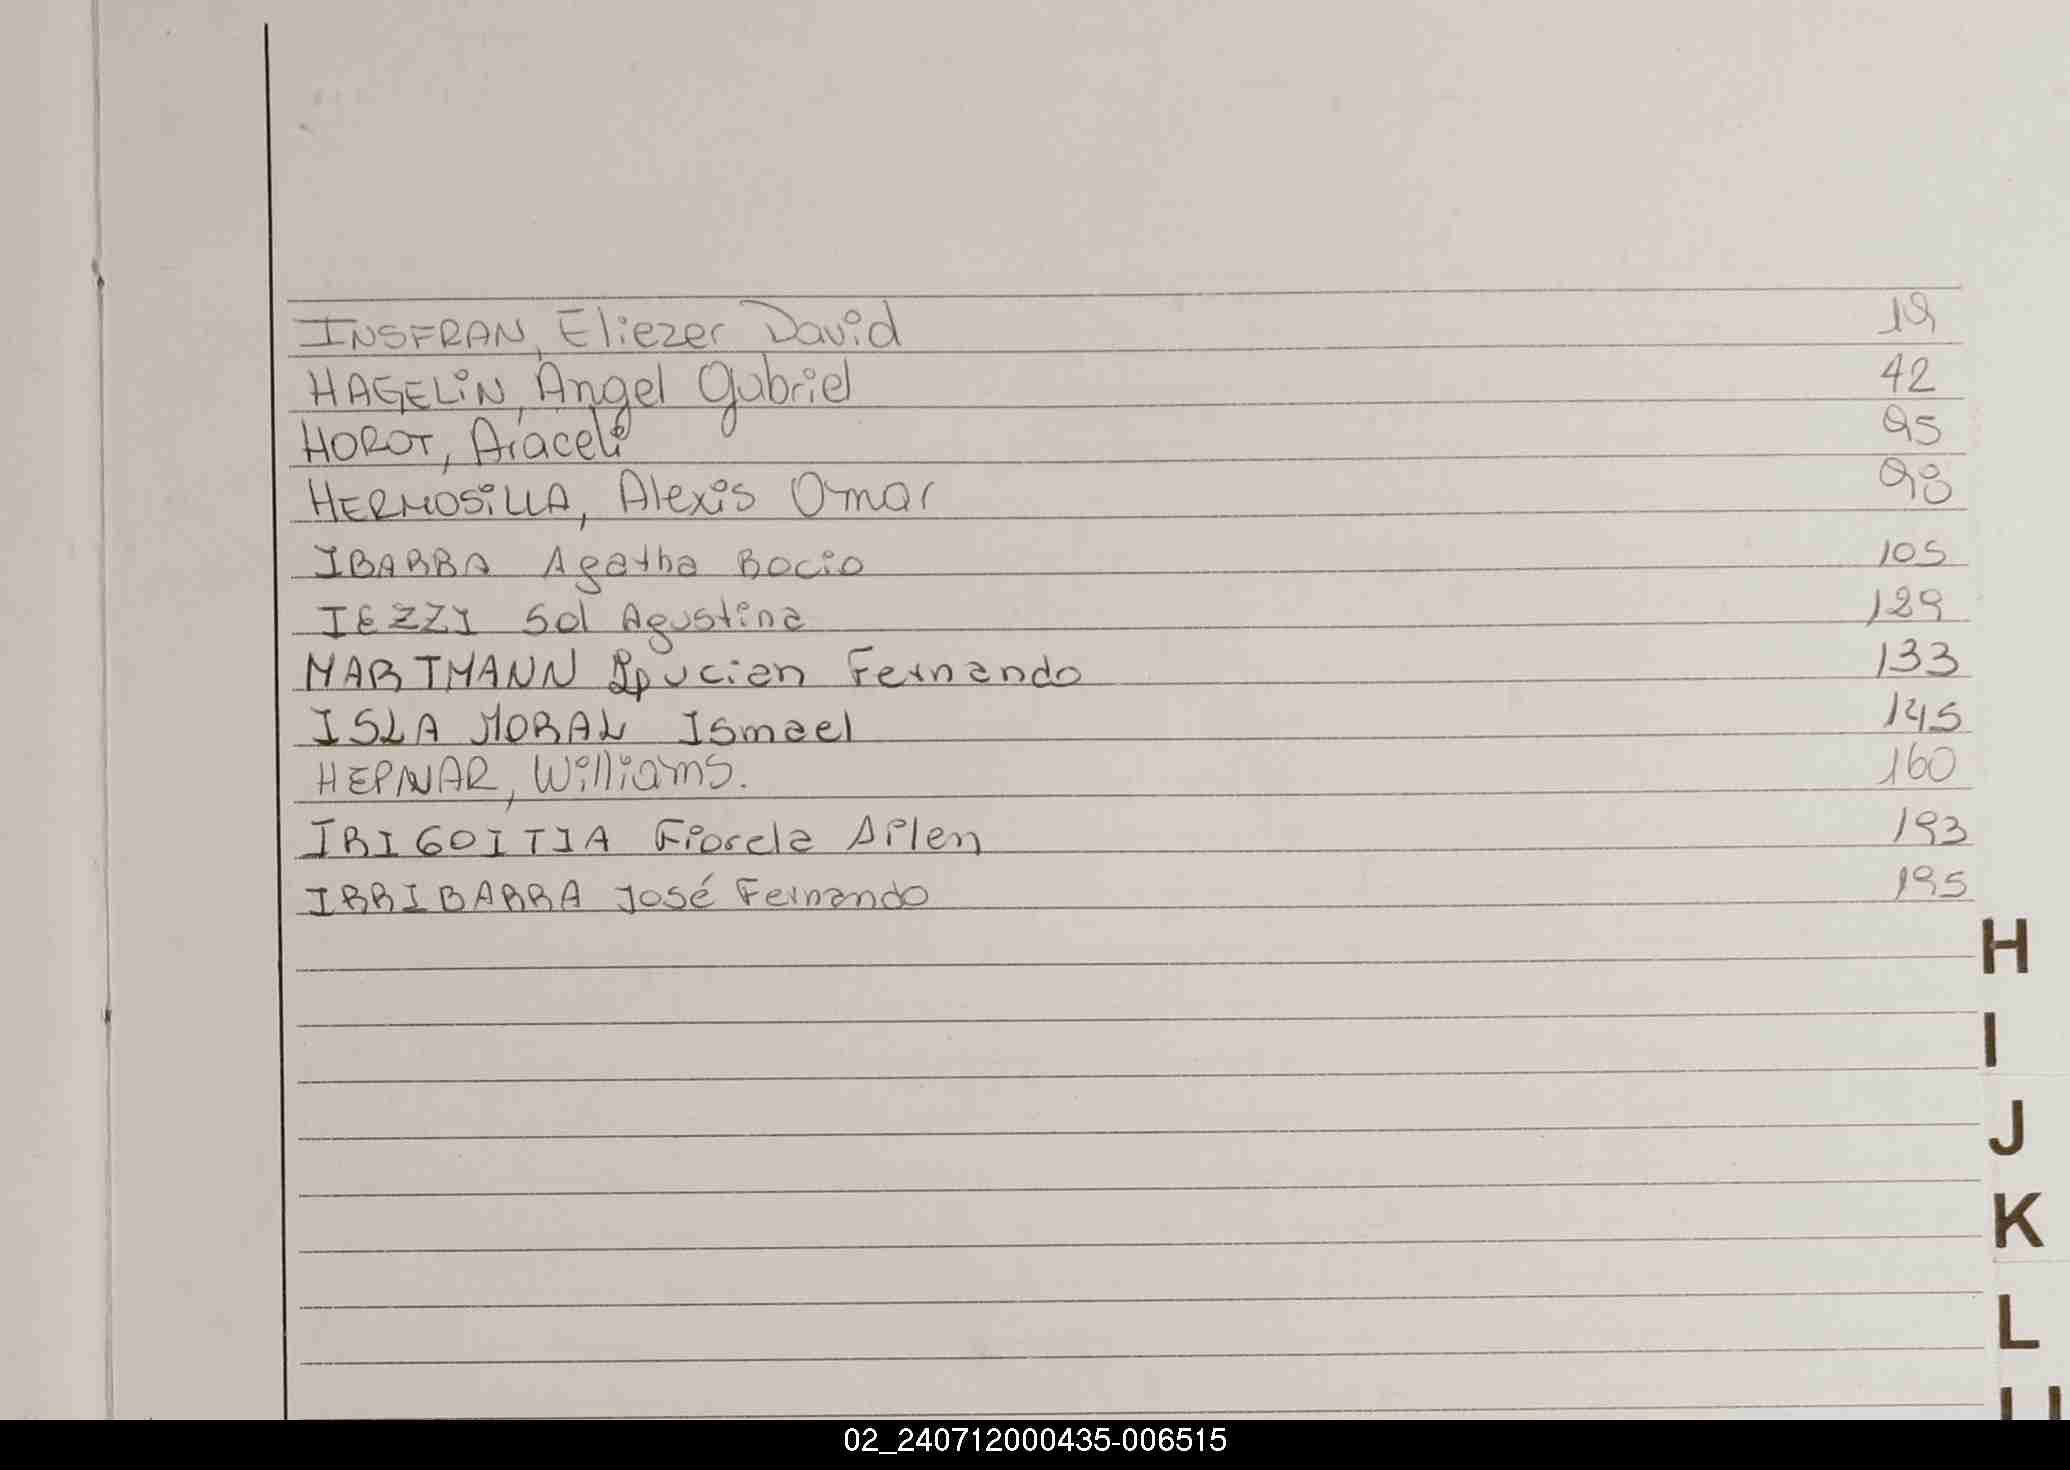 INSFRAN, Eliezer David 19
HAGELIN, Angel Gabriel 42
HOROT, Araceli 95
HERMOSILLA, Alexis Omar 98
IBARRA Agatha Rocio 105
IEZZI Sol Agustina 129
HARTMANN Fernando 133
ISLA MORAL Ismael 145
Williams. 160
IRIGOITIA Fiorela Ailen 193
IRRIBARRA José Fernando 195
H
I
J
K
L
02_240712000435-006515